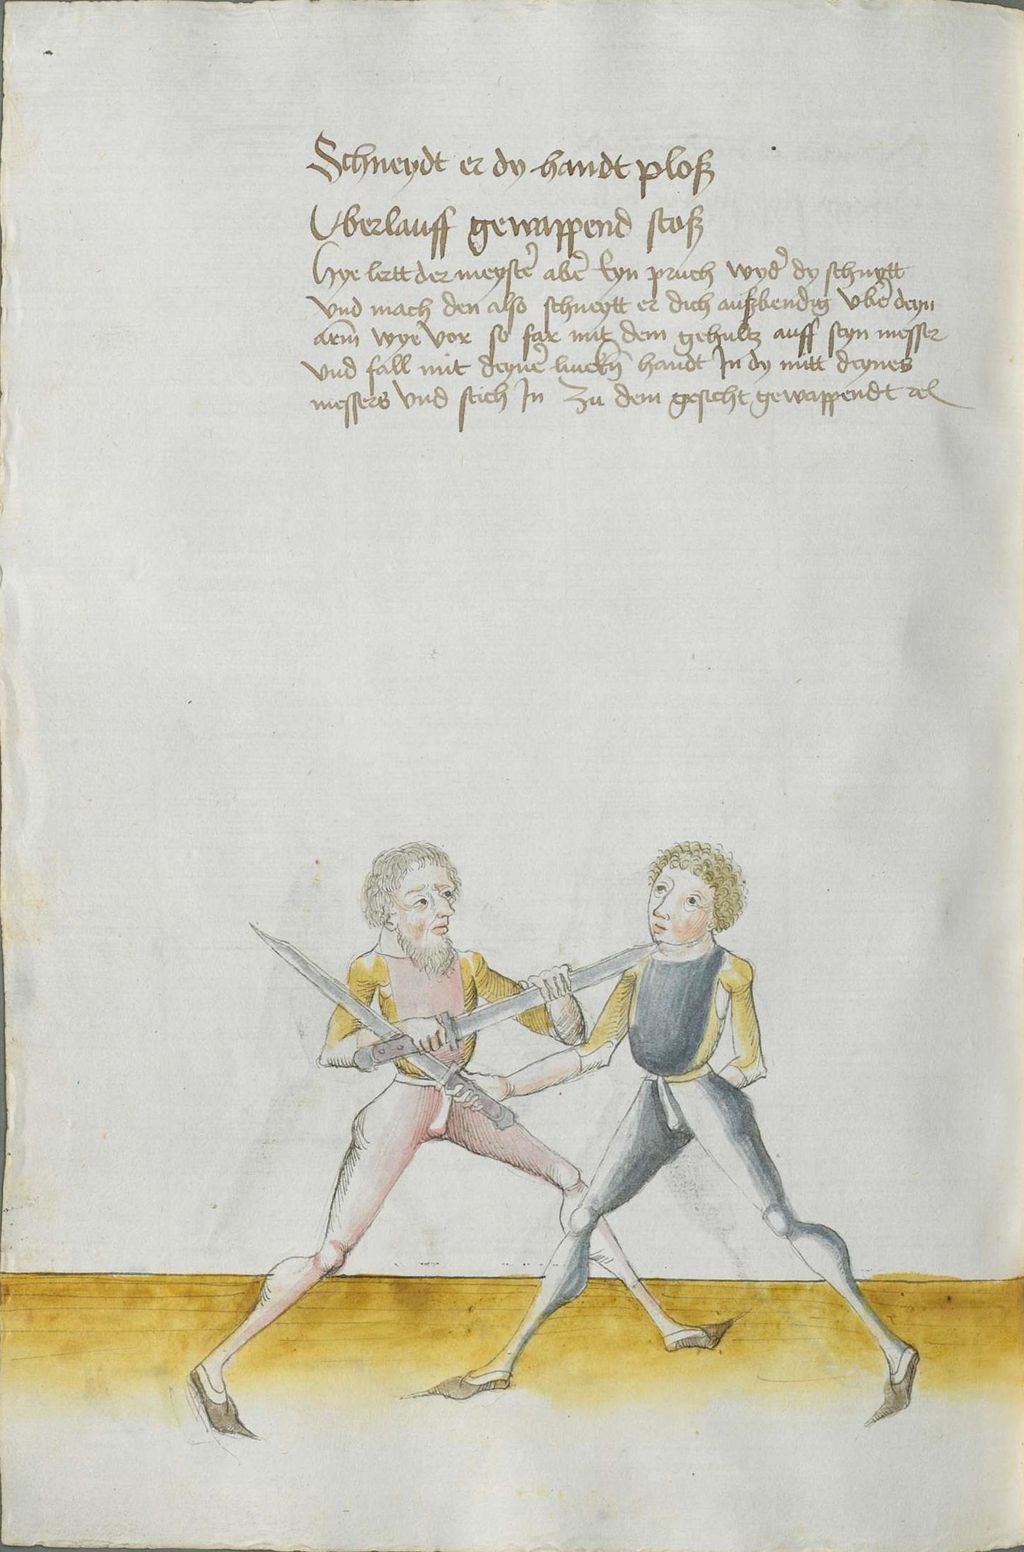 Schneydt er dy handt ploß
Vberlauff gewappend stoß
Hye lertt der meyster aber Eyn pruch wyder dy schnytt
Vnd mach den also schneytt er dich außbendig Vber deyn
arm wye vor so far mit dem gehultz auff seyn messer
Vnd fall mit deyner lincken handt In dy mitt deynes
messers Vnd stich In Zu dem gesicht gewappendt